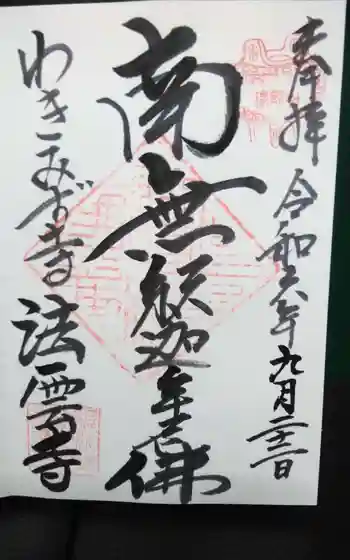 奉拝
令和六年九月二十二日
南無釈迦牟尼佛
わきみず寺
法雲寺